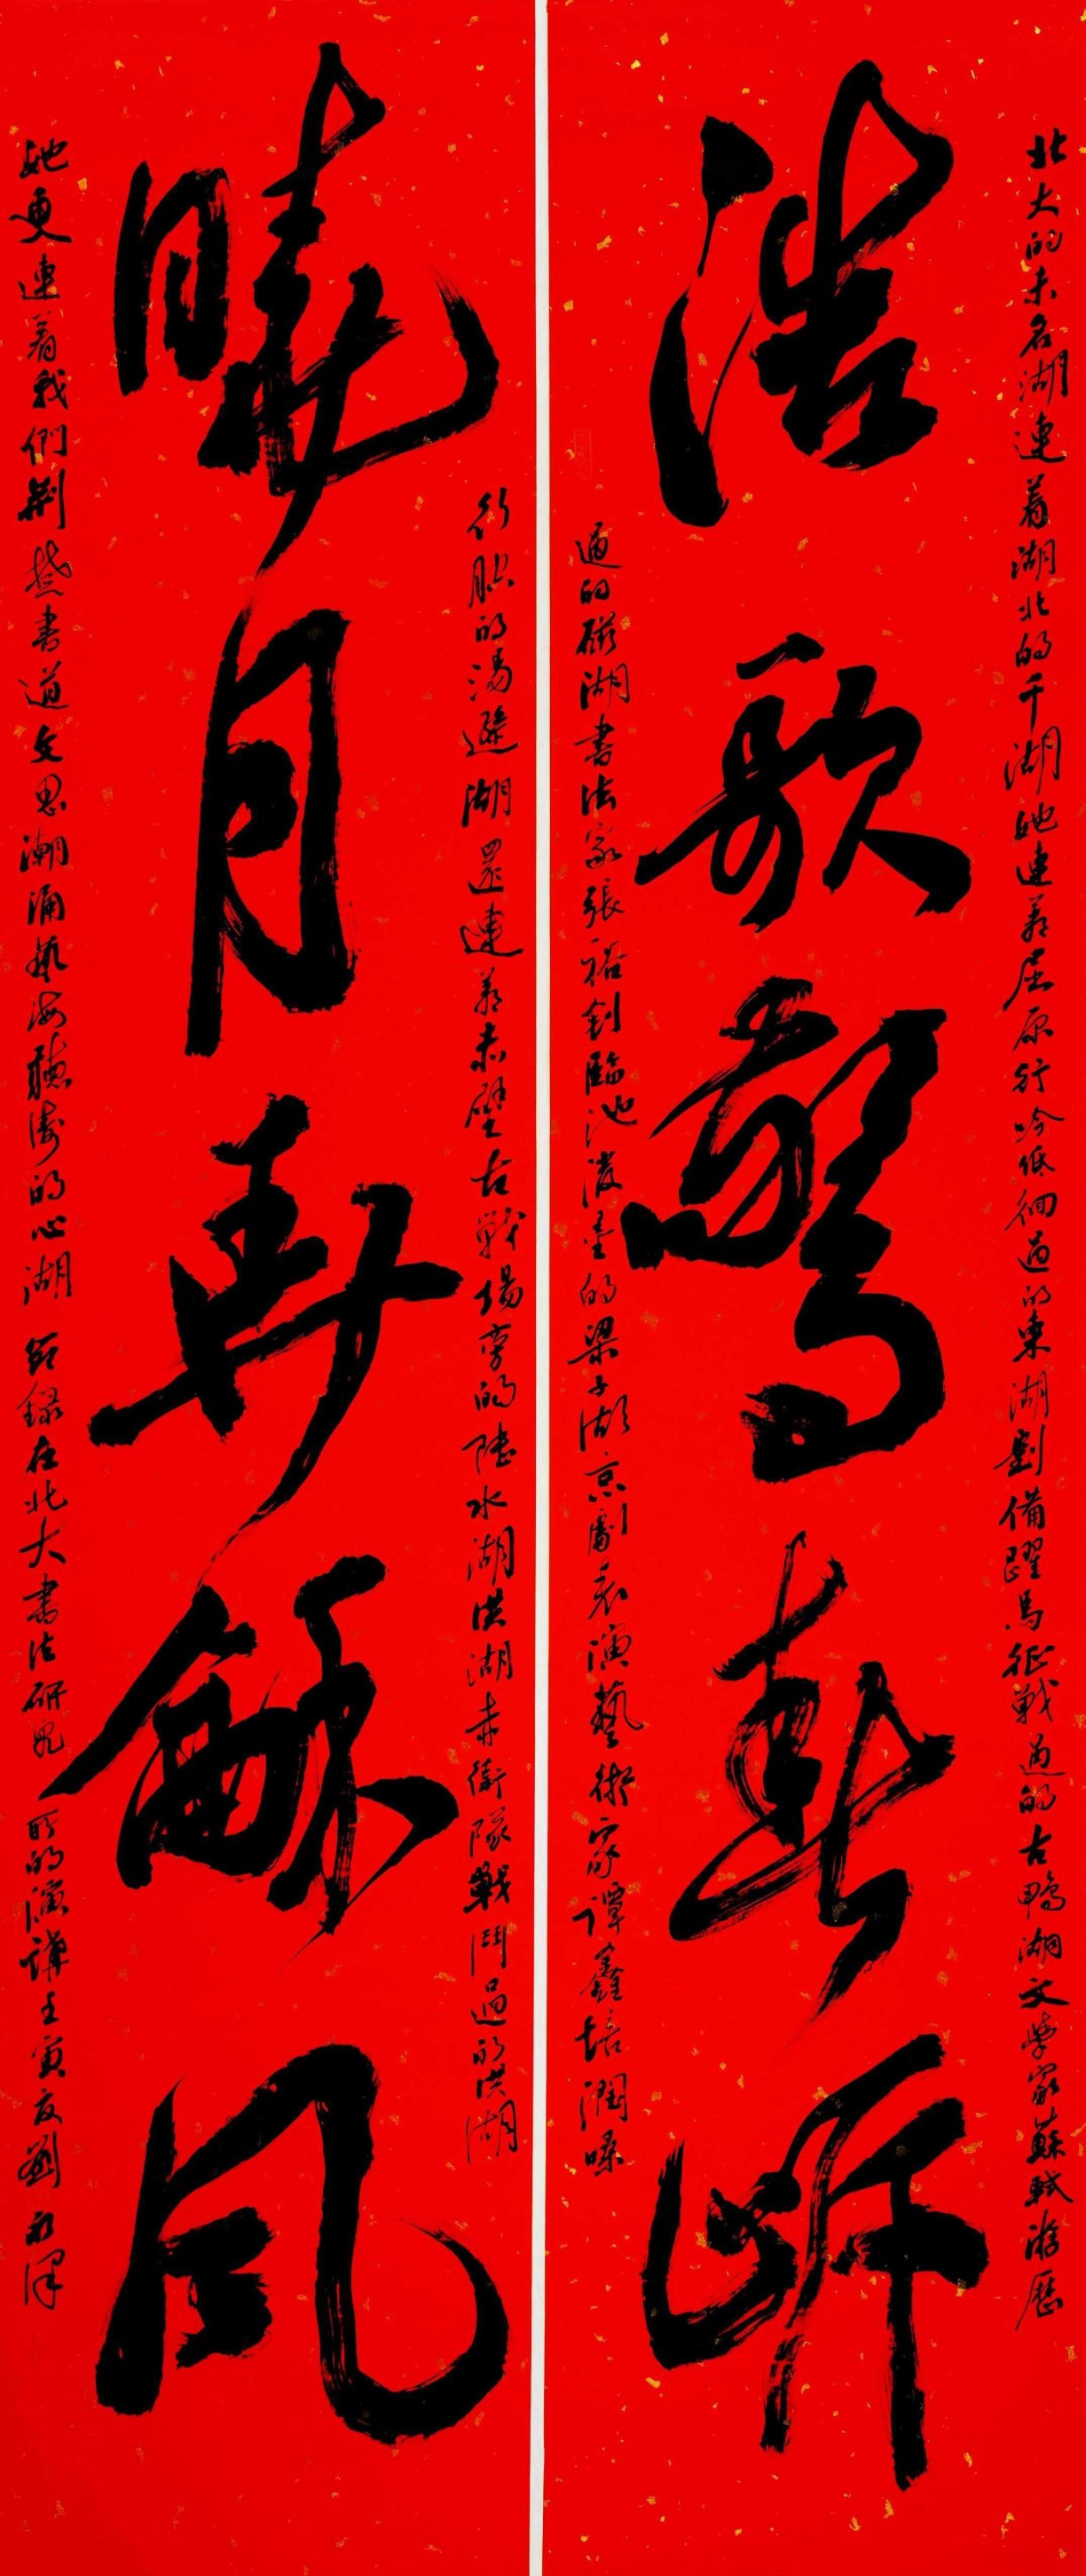 浩歌驚春
北大的未名湖連着湖北的千湖她連着屈原行吟低徊過的東湖劉備躍馬征戰過的古鴨湖文學家蘇軾游歷
過的磁湖書法家張裕釗臨池潑墨的梁子湖京劇表演藝術家譚鑫培潤嗓
曉月龢風
行腔的湯遜湖還連着赤壁古戰場旁的陸水湖洪湖赤衛隊戰鬥過的洪湖
她更連着我們荊楚書道文思潮涌藝海聽濤的心湖 節錄在北大書法研究所的演講壬寅夏劉永澤